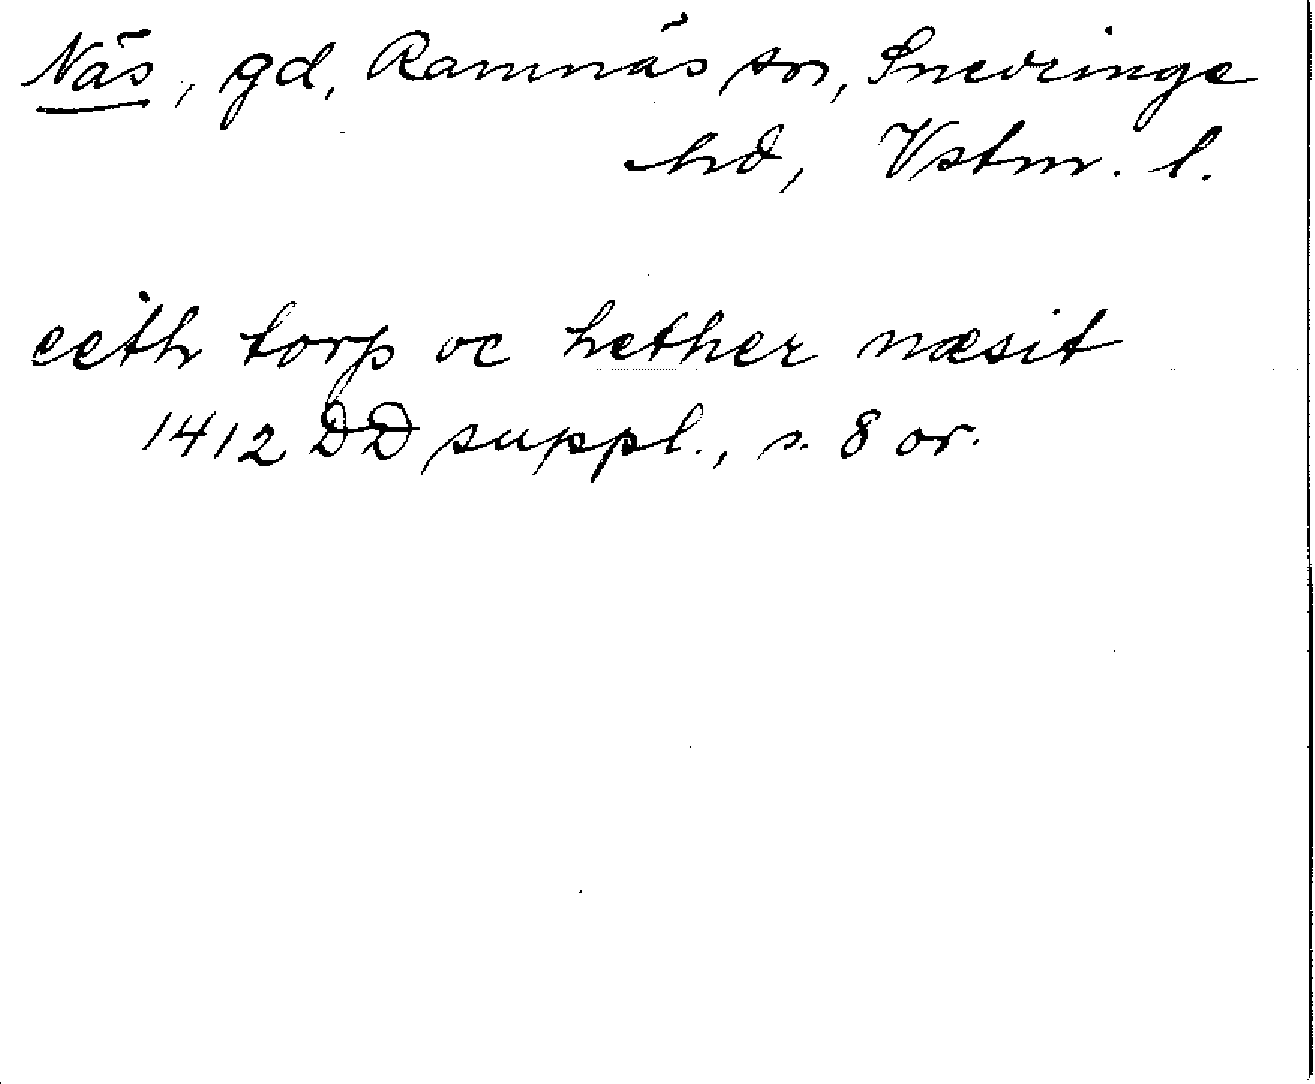 Näs, gd, Ramnäs sn, Snevringe
hd, Vstm. l.
eeth torp oc hether næsit
1412 DD suppl., s. 8 or.